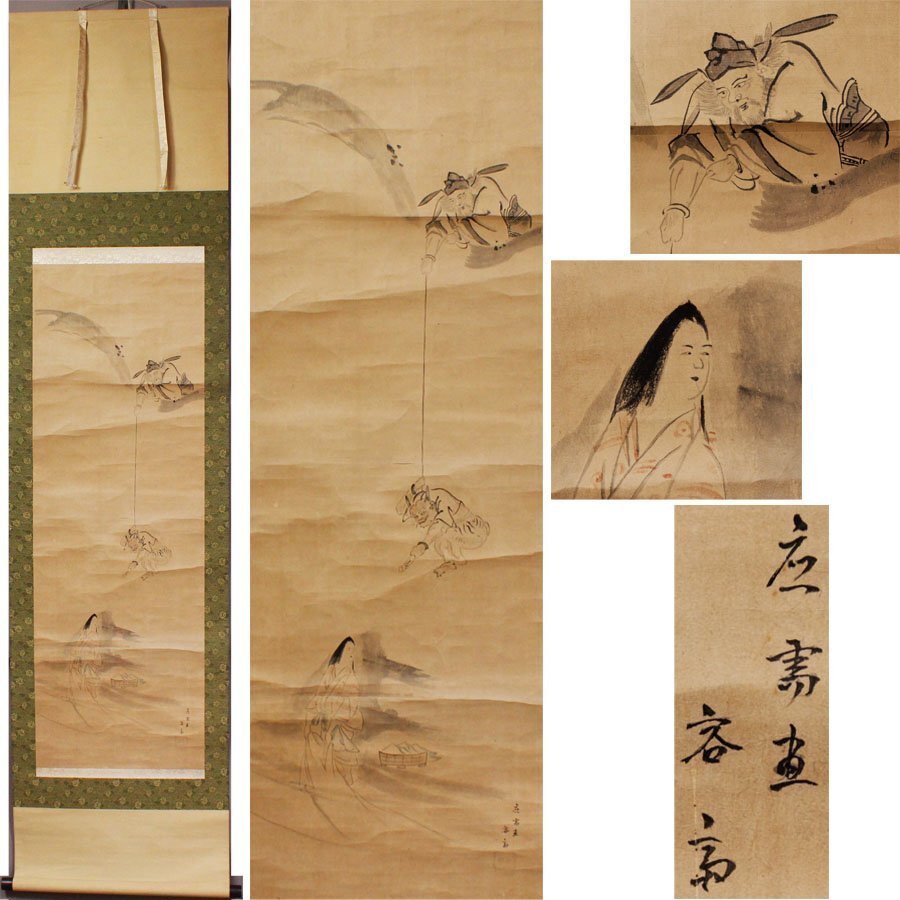 応需画
容斎